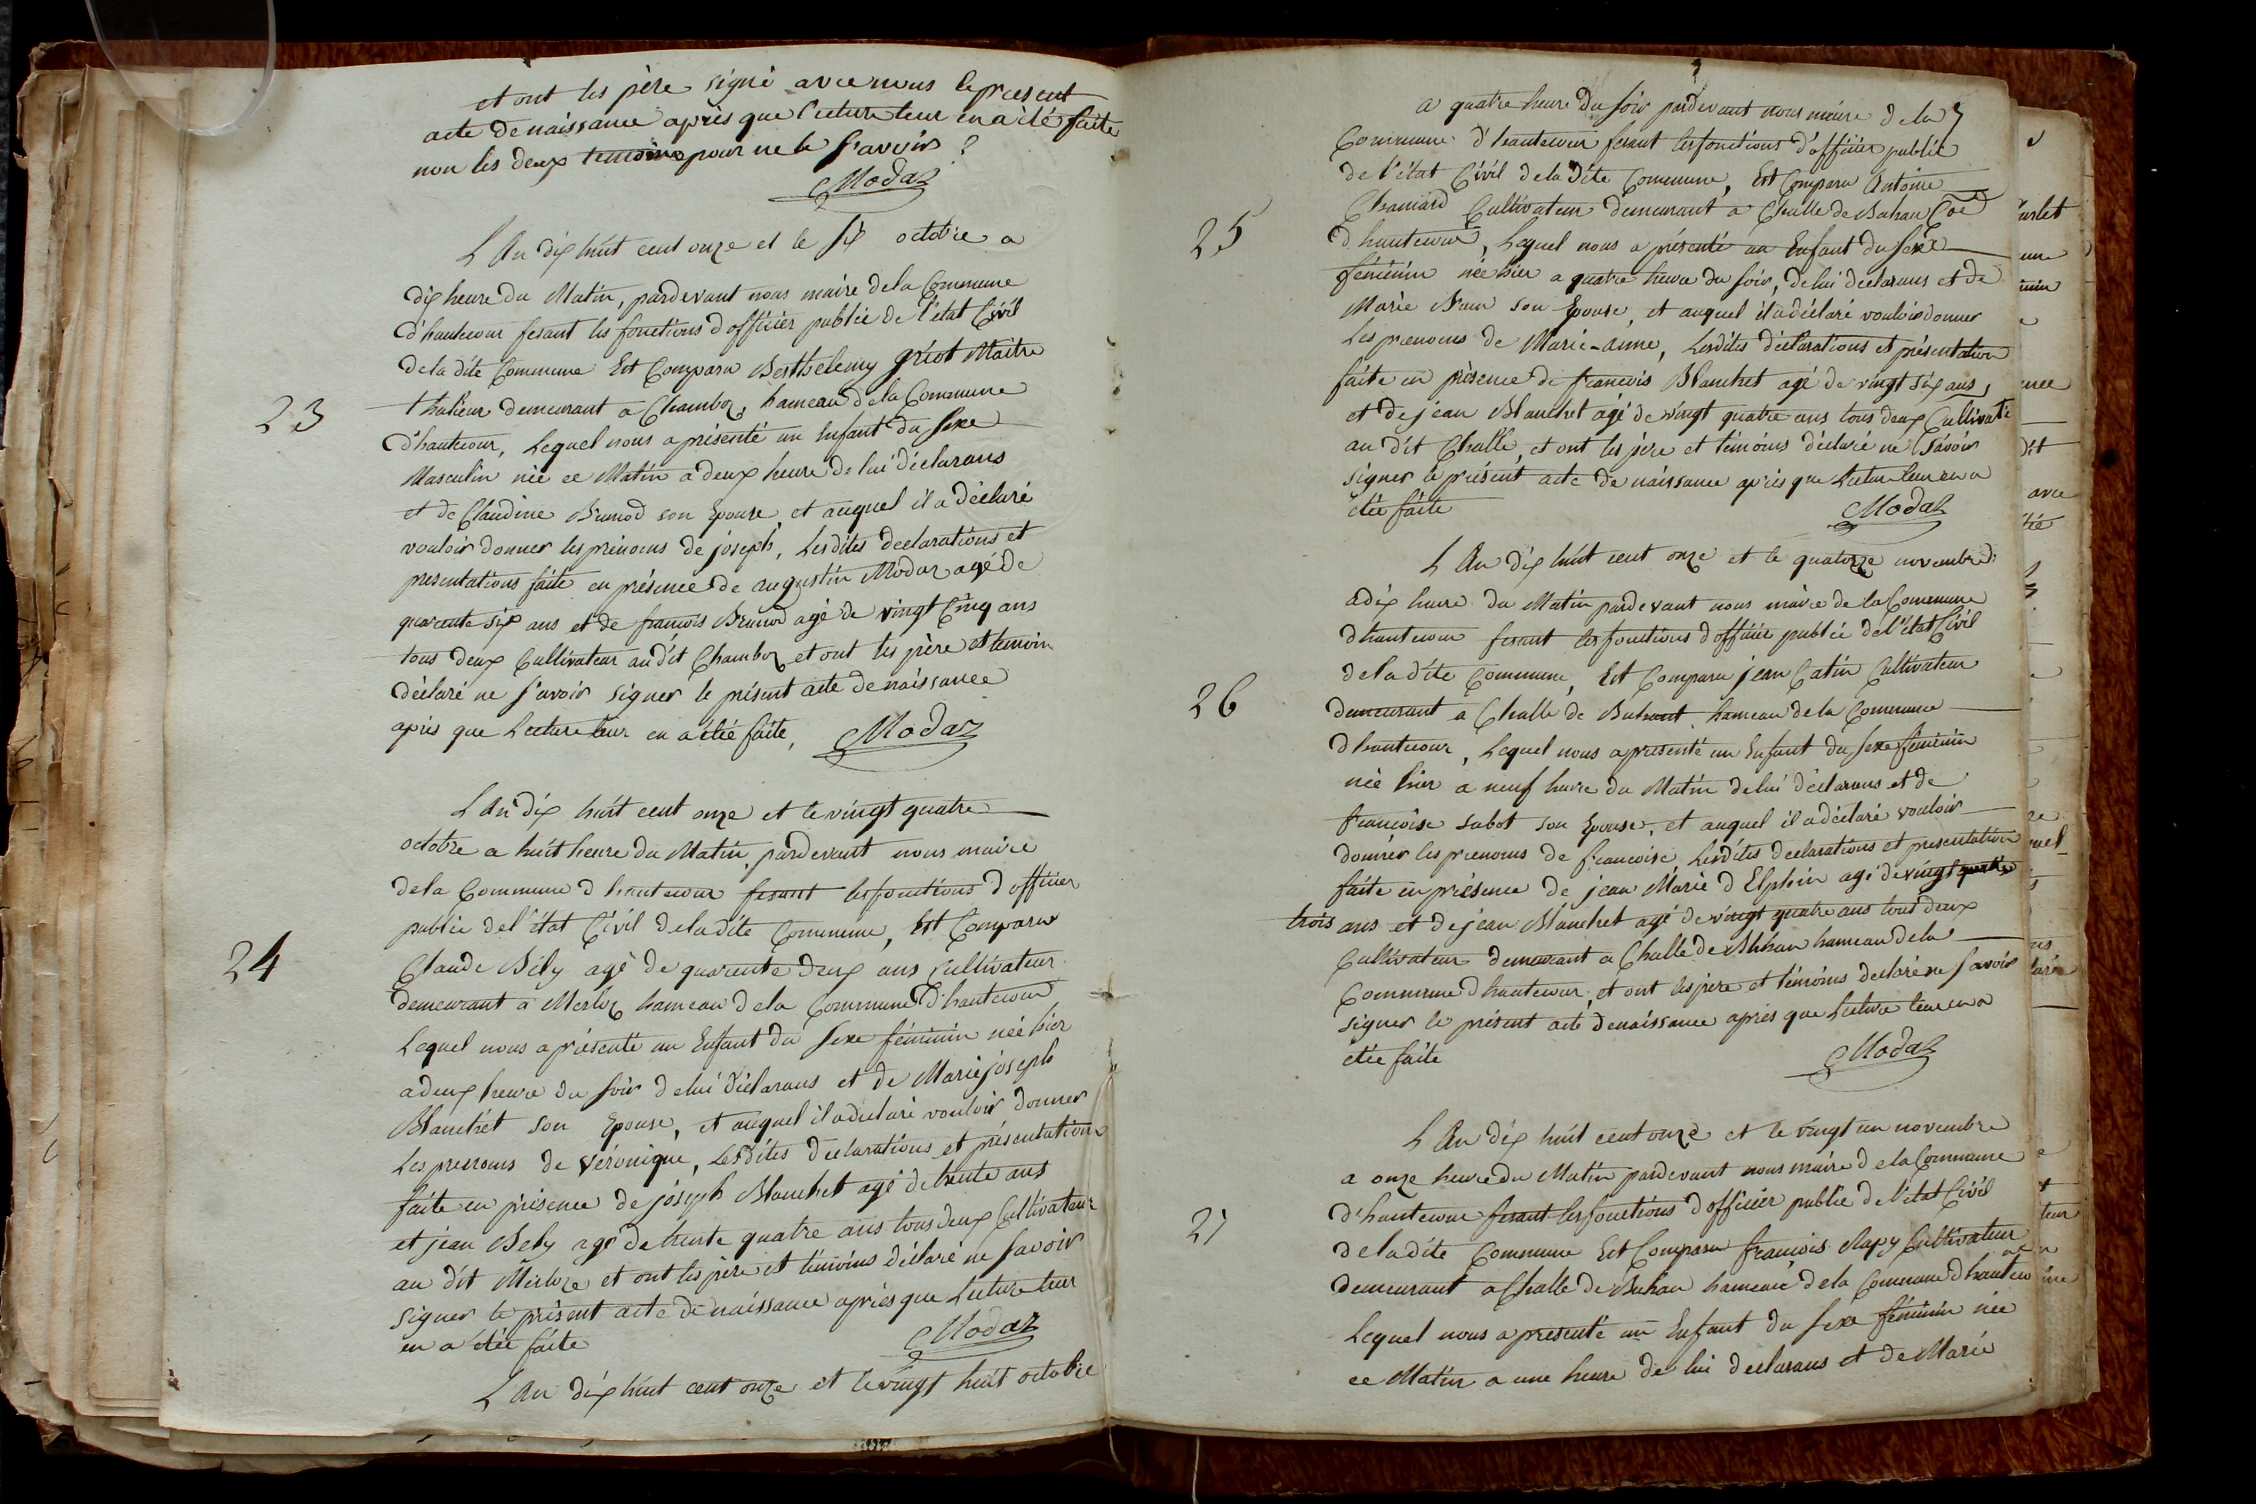 et ont les père signé avec nous le present
acte de naissance après que lecture leur en a été faite
non les deux temoins pour ne le savoir
Modaz
L An dix huit cent onze et le six octobre a
dix heure du Matin, pardevant nous maire dela Commune
d'hautecour fesant les fonctions d officier public de l'état Civil
dela dite Commune Est Comparu Berthelemy griot Maitre
23
demeurant a Chamboz, hameau dela Commune
d'hautecour, Lequel nous a présenté un Enfant du sexe
Masculin née ce Matin a deux heure de lui déclarans
et de Claudine Brunod son Epouse, et auquel il a déclaré
vouloir donner les prénoms de joseph, Lesdites declarations et
presentations faite en présence de augustin Modaz agé de
quarente six ans et de françois Brunod agé de vingt Cinq ans
tous deux Cultivateur au dit Chamboz et ont les père et temoin
déclaré ne savoir signer le présent acte de naissance
après que Lecture leur en a étée faite,
Modaz
L An dix huit cent onze et le vingt quatre
octobre a huit heure du Matin, pardevant nous maire
dela Commune d hautecour fesant les fonctions d officier
public del'état Civil dela dite Commune, Est Comparu
24
Claude Bèly agé de quarente deux ans Cultivateur
demeurant a Merloz hameau dela Commune d'hautecour
Lequel nous a présenté un Enfant du Sexe féminin née hier
a deux heure du soir de lui déclarans et de Marie joseph
Blanchet son Epouse, et auquel il a declaré vouloir donner
Les prenoms de Véronique, Lesdites declarations et présentation
faite en présence de joseph Blanchet agé de trente ans
et jean Bely agé de trente quatre ans tous deux Cultivateur
au dit Merloze et ont les père et témoins déclaré ne savoir
signer le présent acte de naissance après que Lecture leur
en a étée faite
Modaz
L An dix huit cent onze et le vingt huit octobre
a quatre heure du soir pardevant nous maire dela
Commune d'hautecour fesant les fonctions d'officier public
de l'état Civil dela dite Commune, Est Comparu Antoine
Cultivateur demeurant a Challe de Buhan Coe
25
d hautecour, Lequel nous a présenté un Enfant du sexe
féminin née hier a quatre heure du soir, de lui declarans et de
Marie son Epouse, et auquel il a déclaré vouloir donner
Les prenoms de Marie-anne, Lesdites déclarations et présentation
faite en présence de francois Blanchet agé de vingt six ans,
et de jean Blanchet agé de vingt quatre ans tous deux Cultivate
au dit Challe, et ont les père et témoins déclaré ne Savoir
signer le présent acte de naissance après que Lecture leur en a
étée faite
Modaz
L An dix huit cent onze et le quatorze novembre
a dix heure du Matin pardevant nous maire de la Commune
d hautecour fesant les fonctions d officier public de l'état Civil
dela dite Commune, Est Comparu jean Catin Cultivateur
26
demeurant a Challe de Buhant hameau de la Commune
d hautecour, Lequel nous a presenté un Enfant du sexe féminin
née hier a neuf heure du Matin de lui déclarans et de
françoise sabot son Epouse, et auquel il a déclaré vouloir
donner les prenoms de francoise, Lesdites declarations et presentation
faite en présence de jean Marie d Elphin agé de vingt quatre
trois ans et de jean Blanchet agé de vingt quatre ans tous deux
Cultivateur demeurant a Challe de Buhan hameau dela
Commune d hautecour, et ont les père et témoins declaré ne savoir
signer le présent acte denaissance après que Lecture leur en a
étée faite
Modaz
L An dix huit cent onze et le vingt un novembre
a onze heure du Matin pardevant nous maire dela Commune
d'hautecour fesant les fonctions d officier public de l'état Civil
27
dela dite Commune Est Comparu françois Cultivateur
demeurant a Challe de Buhan hameau dela Commune d hautecour
Lequel nous a presenté un Enfant du sexe féminin née
ce Matin a une heure de lui declarans et de Marie